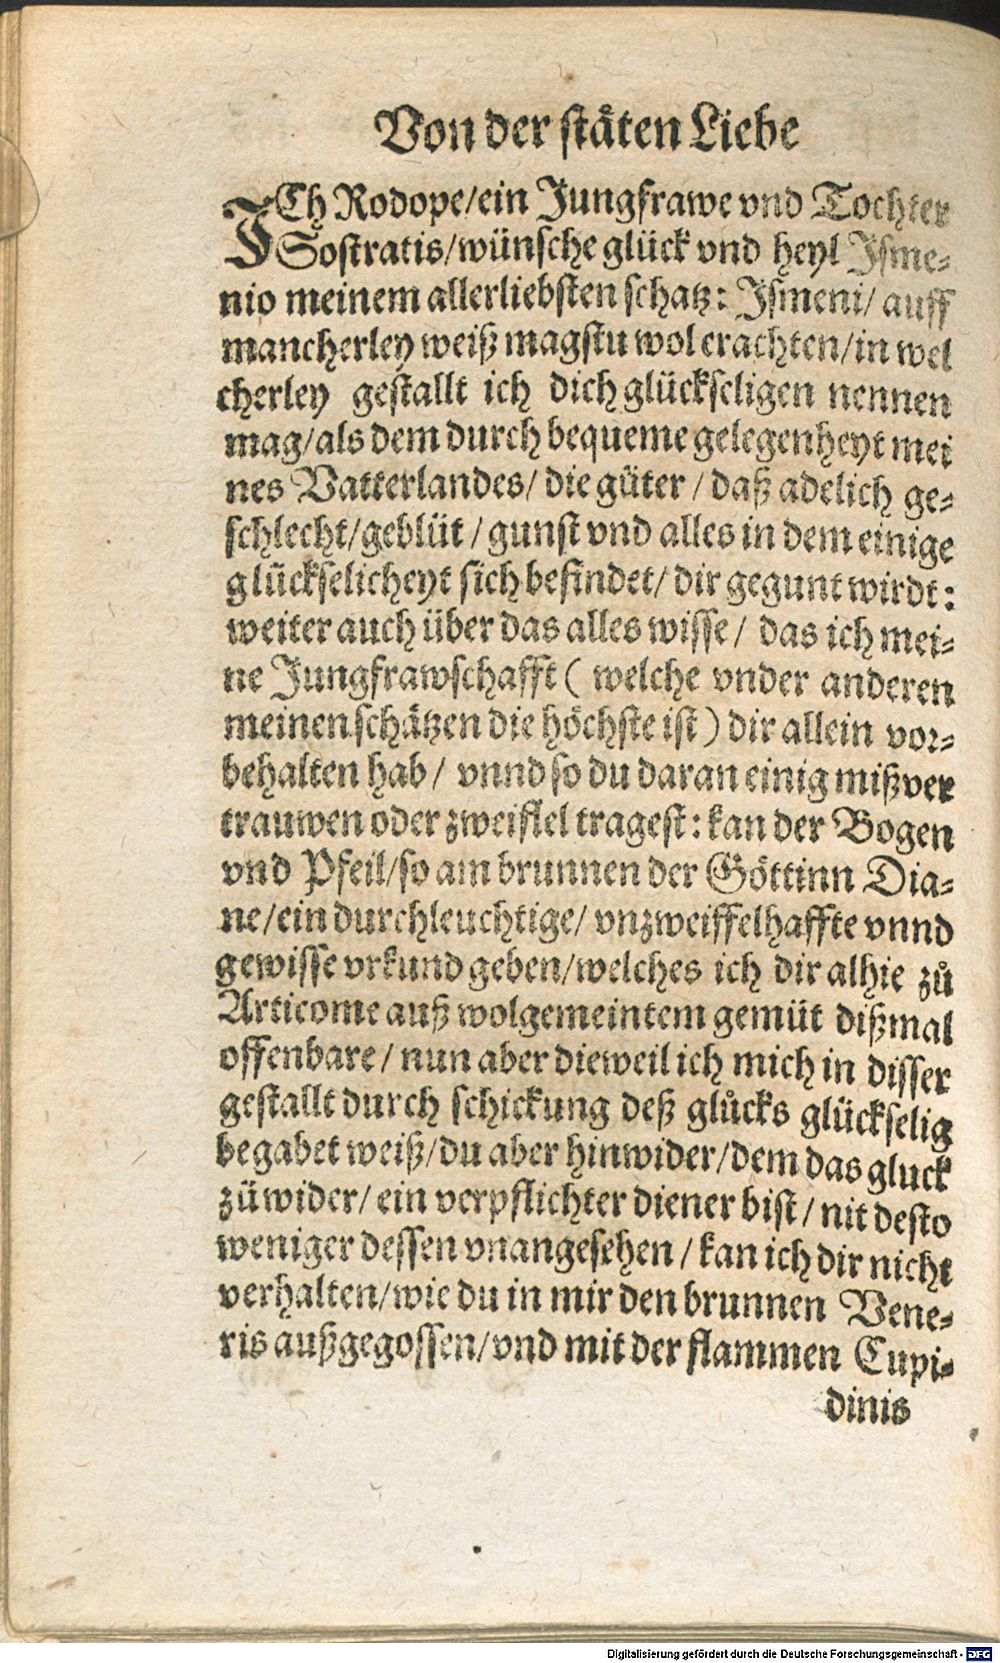 Von der ståten Liebe
ICh Rodope/ein Jungfrawe vnd Tochter
Sostratis/wünsche glück vnd heyl Jsme-
nio meinem allerliebsten schatz: Jsmeni/ auff
mancherley weiß magstu wol erachten/in wel
cherley gestallt ich dich glückseligen nennen
mag/als dem durch bequeme gelegenheyt mei
nes Vatterlandes/ die güter / daß adelich ge-
schlecht/geblüt / gunst vnd alles in dem einige
glückselicheyt sich befindet/ dir gegunt wirdt:
weiter auch über das alles wisse / das ich mei-
ne Jungfrawschafft ( welche vnder anderen
meinen schätzen die höchste ist ) dir allein vor-
behalten hab / vnnd so du daran einig mißver
trauwen oder zweiflel tragest: kan der Bogen
vnd Pfeil/so am brunnen der Göttinn Dia-
ne/ein durchleuchtige/ vnzweiffelhaffte vnnd
gewisse vrkund geben/welches ich dir alhie zů
Articome auß wolgemeintem gemüt dißmal
offenbare / nun aber dieweil ich mich in disser
gestallt durch schickung deß glůcks glückselig
begabet weiß/du aber hinwider/dem das gluck
zü wider/ ein verpflichter diener bist / nit desto
weniger dessen vnangesehen / kan ich dir nicht
verhalten/wie du in mir den brunnen Vene-
ris außgegossen/vnd mit der flammen Cupi-
dinis
Digitalisierung gefördert durch die Deutsche Forschungsgemeinschaft - DFG